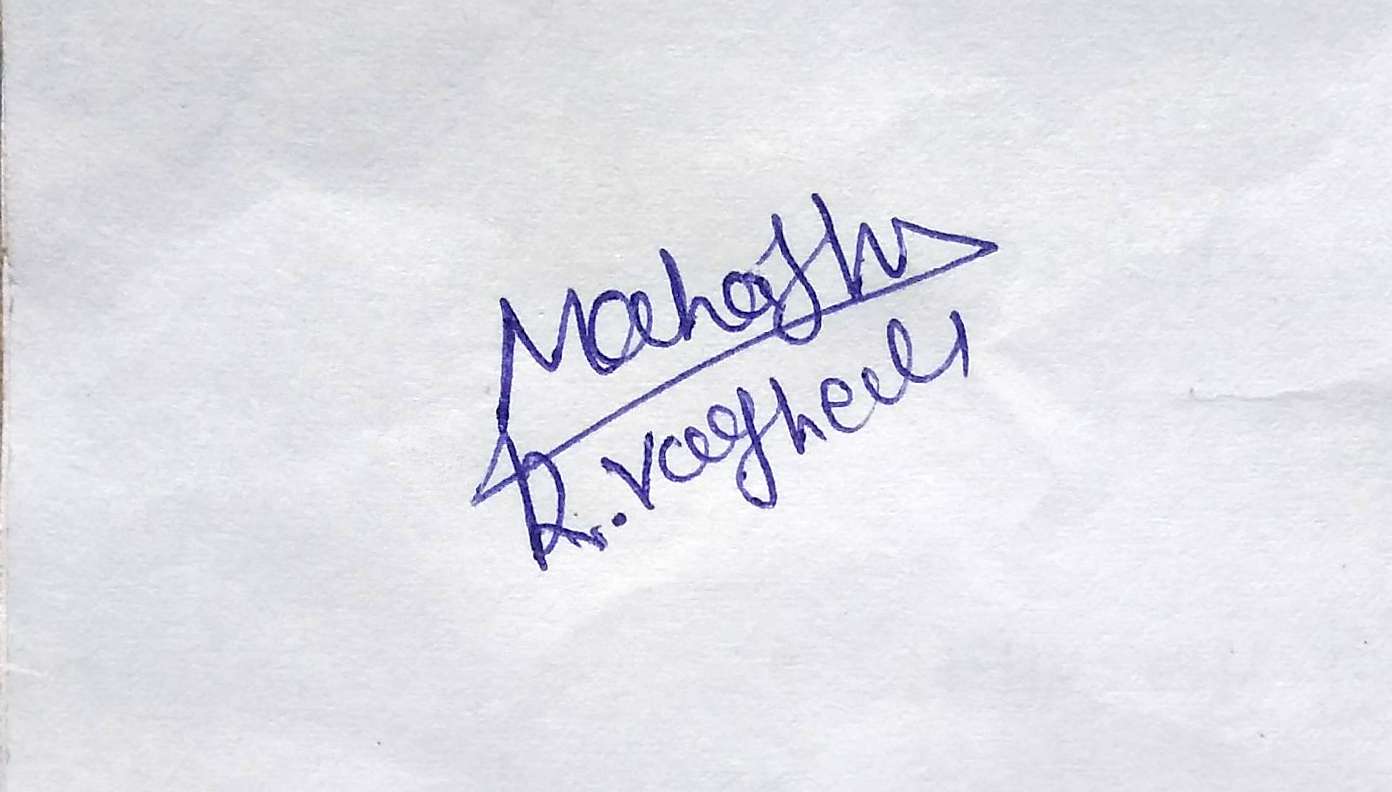 Mahesh
R. Vaghela